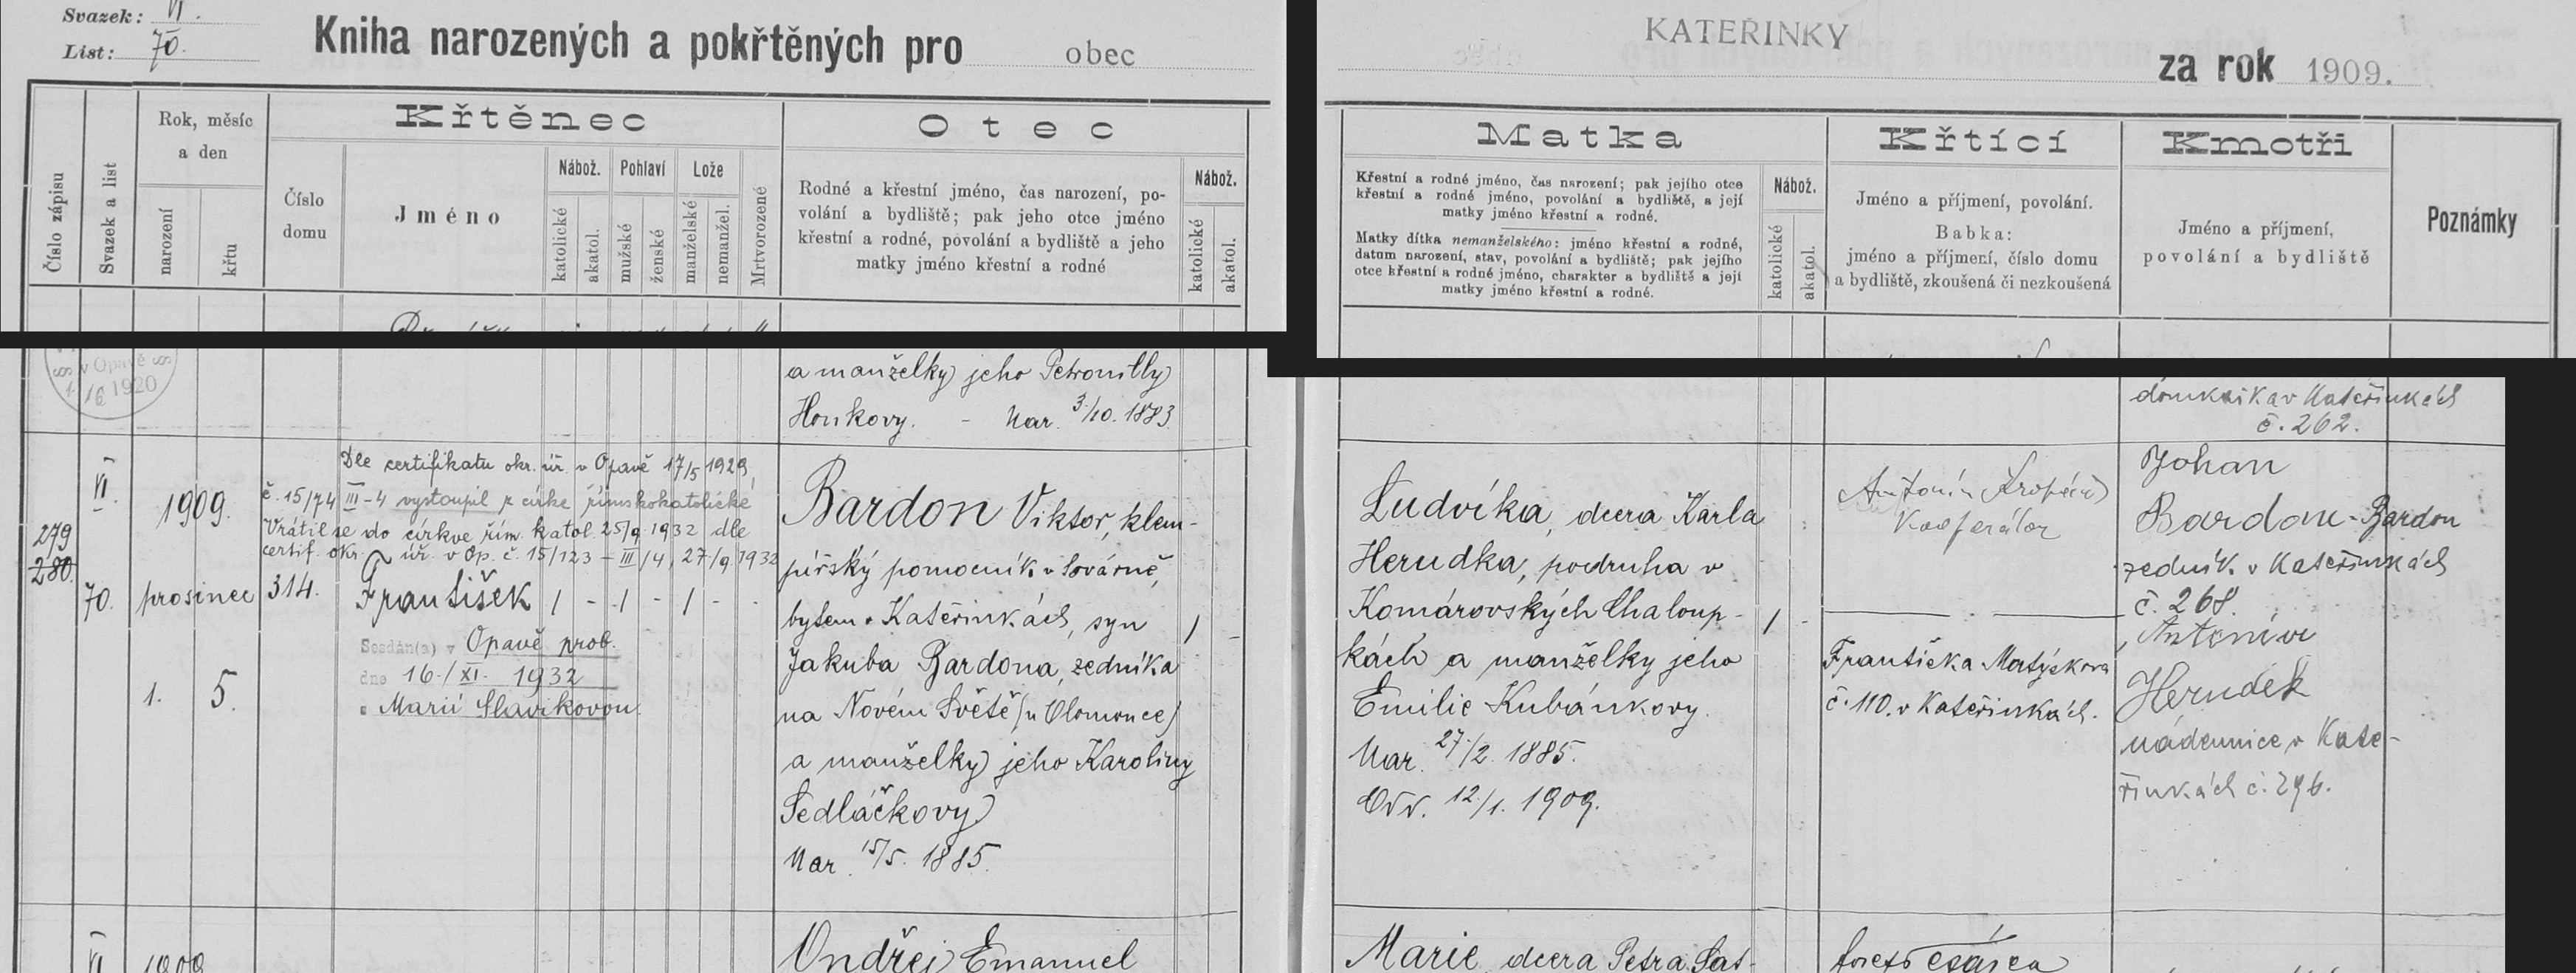 Svazek: VI.
List: 70.
Kniha narozených a pokřtěných pro obec
KATEŘINKY
za rok 1909.
Číslo zápisu
Svazek a list
Rok, měsíc
a den
narození
křtu
Křtěnec
Číslo
domu
Jméno
Nábož.
katolické
akatol.
Pohlaví
mužské
ženské
Lože
manželské
nemanžel.
Mrtvorozené
Otec
Rodné a křestní jméno, čas narození, po-
volání a bydliště; pak jeho otce jméno
křestní a rodné, povolání a bydliště a jeho
matky jméno křestní a rodné
Nábož.
katolické
akatol.
Matka
Křestní a rodné jméno, čas narození; pak jejího otce
křestní a rodné jméno, povolání a bydliště, a její
matky jméno křestní a rodné.
Matky dítka nemanželského: jméno křestní a rodné,
datum narození, stav, povolání a bydliště; pak jejího
otce křestní a rodné jméno, charakter a bydliště a její
matky jméno křestní a rodné.
Nábož.
katolické
akatol.
Křtící
Jméno a příjmení, povolání.
Babka:
jméno a příjmení, číslo domu
a bydliště, zkoušená či nezkoušená
Kmotři
Jméno a příjmení,
povolání a bydliště
Poznámky
v Opavě
1920
a manželky jeho Petronilly
Honkovy. - Nar. 3/10. 1883
domkařka v Kateřinkách
č. 262.
279
280.
VI.
70.
1909.
prosinec
1. 5.
Dle certifikatu okr. úř. v Opavě 17/5 1929,
č. 15/74 III-4 vystoupil z círke římskokatolické
Vrátil se do církve řím. katol. 25/9 1932 dle
certif. okr. úř. v Op. č. 15/123 - III/4, 27/9 1932
314.
František 1 - 1 - 1 - -
Sezdán(a) v Opavě prob.
dne 16./XI. 1932
s Marií Slavíkovou
Bardon Viktor, klem-
pířský pomocník v továrně,
bytem v Kateřinkách, syn
Jakuba Bardona, zedníka
na Novém Světě (u Olomouce)
a manželky jeho Karoliny
Sedláčkovy
Nar. 15/5. 1885.
1 -
Ludvíka, dcera Karla
Herudka, podruha v
Komárovských Chaloup-
kách a manželky jeho
Emilie Kubánkovy.
Nar. 27/2. 1885.
Odd. 12/1. 1909.
1 -
Antonín Kropáč
Kooperátor
Františka Matýskova
č. 110. v Kateřinkách.
Johan
Bardon - Bardon
zedník v Kateřinkách
č. 268.
Antonie
Herudek
nádennice v Kate-
řinkách č. 296.
VI
1909
Ondřej Emanuel
Marie, dcera Petra